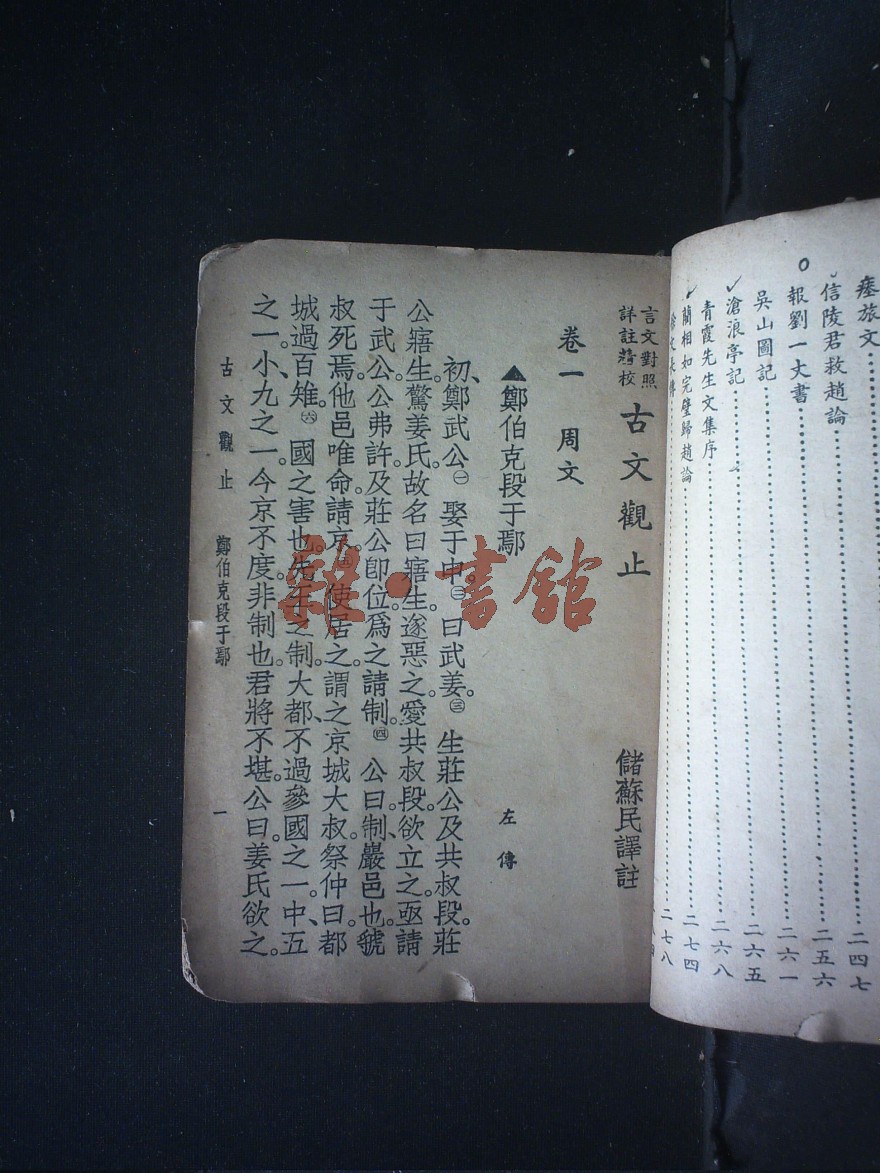 瘞旅文…………二四七
信陵君救趙論…………二五六
報劉一丈書…………二六一
吳山圖記…………二六五
滄浪亭記…………二六八
青霞先生文集序…………二七四
藺相如完璧歸趙論…………二七八
言文對照
詳註精校
古文觀止
儲蘇民譯註
卷一 周文
▲鄭伯克段于鄢
左傳
初、鄭武公㊀娶于申㊁曰武姜。㊂生莊公及共叔段。莊
公寤生。驚姜氏。故名曰寤生。遂惡之。愛共叔段。欲立之。亟請
于武公。公弗許。及莊公卽位。爲之請制。㊃公曰。制、巖邑也。虢
叔死焉。他邑唯命。請京。使居之。謂之京城大叔。祭仲曰。都
城過百雉。㊅國之害也。先王之制。大都、不過參國之一。中、五
之一。小、九之一。今京不度。非制也。君將不堪。公曰。姜氏欲之。
古文觀止 鄭伯克段于鄢 一
雜·書館